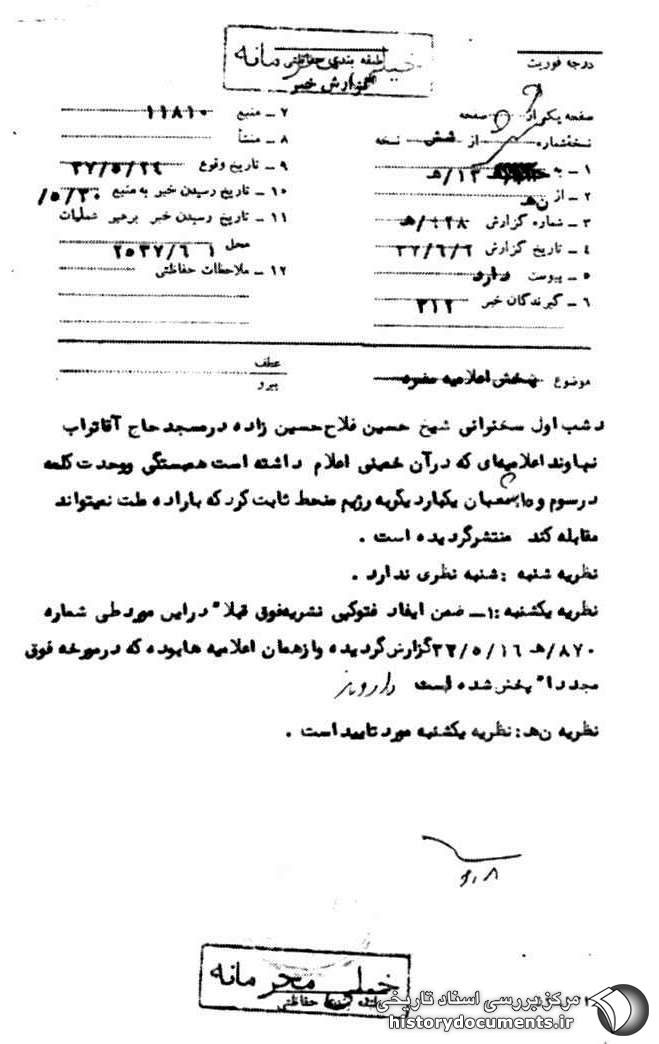 خیلی محرمانه
طبقه بندی حفاظتی
گزارش خبر
درجه فوریت
صفحه یکم از صفحه
نسخه شماره از شش نسخه
۱ ـ به ۱۲/ﻫ
۲ ـ از ن ﻫ
۳ ـ شماره گزارش
۴ ـ تاریخ گزارش ۳۷/۶/۶
۵ ـ پیوست دارد
۶ ـ گیرندگان خبر ۳۱۲
۷ ـ منبع ۱۱۸۱۰
۸ ـ منشأ
۹ ـ تاریخ وقوع ۳۷/۵/۲۴
۱۰ ـ تاریخ رسیدن خبر به منبع ۵/۳۰/
۱۱ ـ تاریخ رسیدن خبر برهبر عملیات
محل ۲۵۳۷/۶/۱
۱۲ ـ ملاحظات حفاظتی
موضوع پخش اعلامیه مضره
عطف
پیرو
دشب اول سخنرانی شیخ حسین فلاح حسین زاده درمسجد حاج آقاتراب
نهاوند اعلامیه‌ای که درآن خمینی اعلام داشته است همبستگی ووحدت کلمه
درسوم و شعبان یکبار دیگر به رژیم منحط ثابت کرد که باراده ملت نمیتواند
مقابله کند منتشرگردیده است .
نظریه شنبه : شنبه نظری ندارد .
نظریه یکشنبه : ۱ـ ضمن ایفاد فتوکپی نشریه فوق قبلا" دراین مورد طی شماره
۸۷۰/ﻫ ۳۷/۵/۱۶ گزارش گردیده و از همان اعلامیه ها بوده که در مورخه فوق
مجددا" پخش شده است
نظریه ن ﻫ : نظریه یکشنبه مورد تایید است .
خیلی محرمانه
طبقه بندی حفاظتی
مرکز بررسی اسناد تاریخی
historydocuments.ir